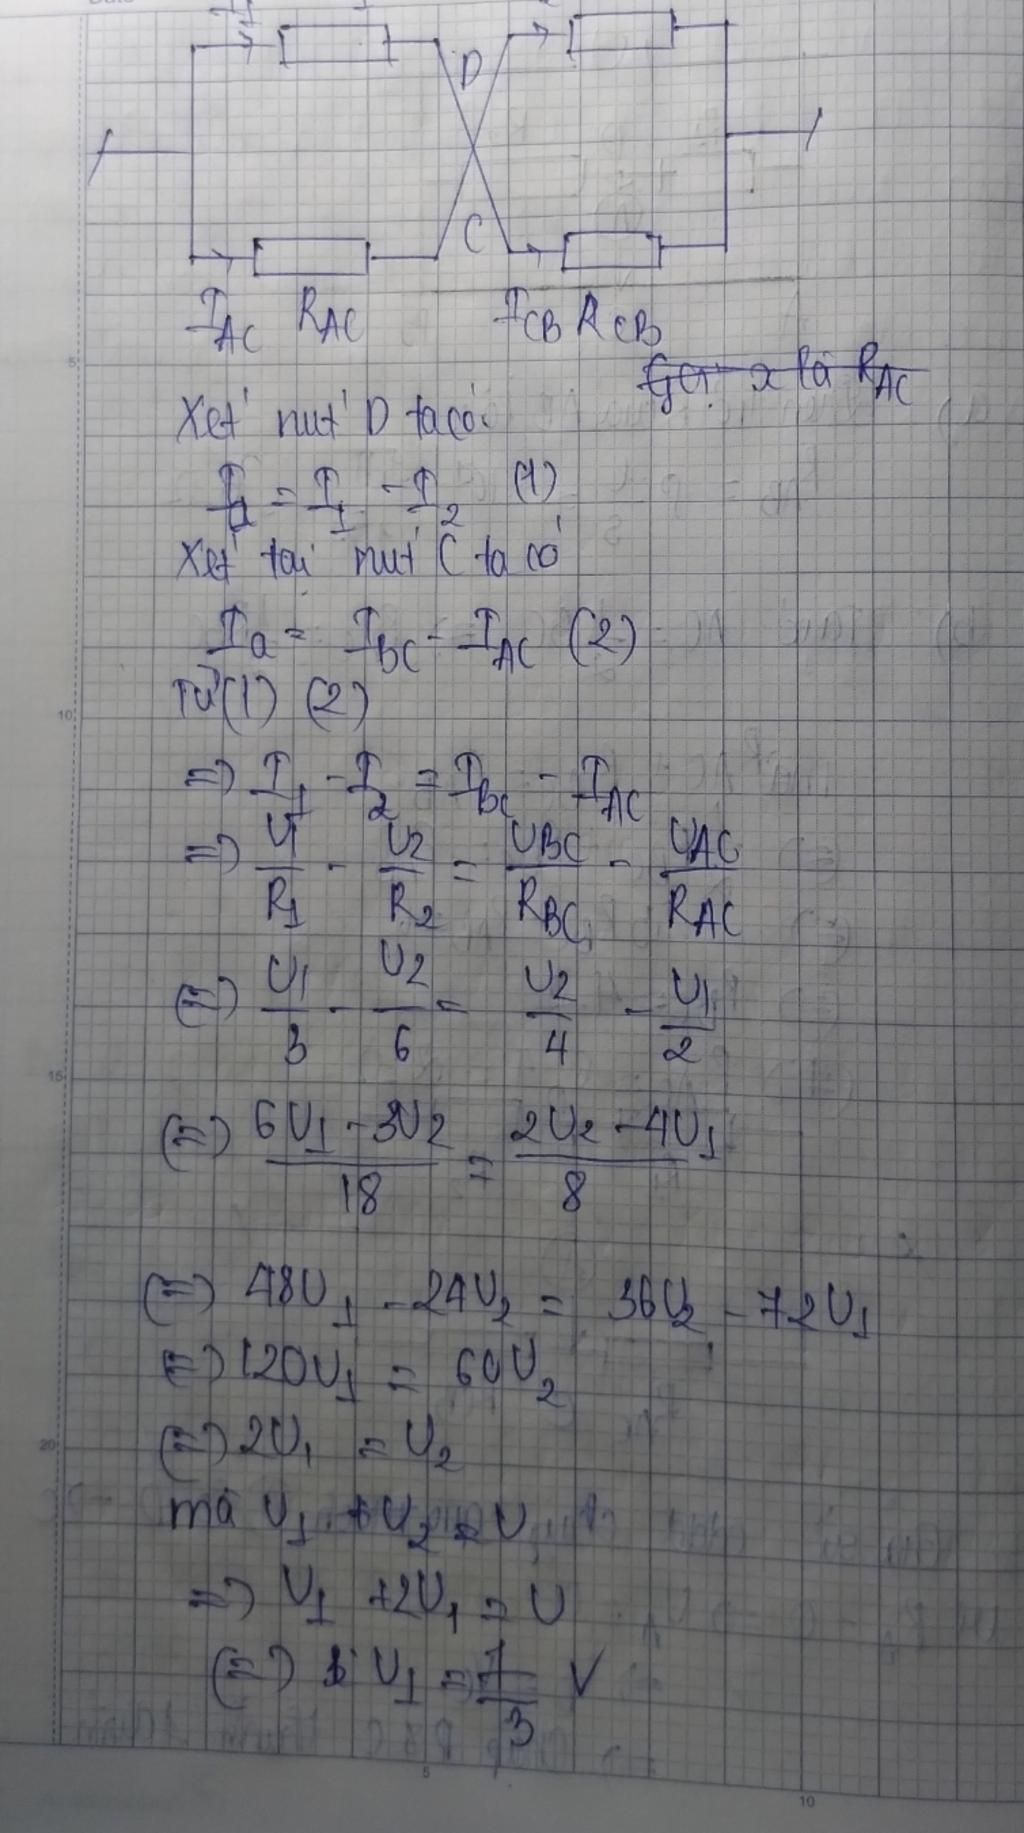 D
C
I_AC R_AC I_CB R_CB
Gọi x là R_AC
Xét nút D ta có:
I_a = I_1 - I_2 (1)
Xét tại nút C ta có
I_a = I_BC - I_AC (2)
Từ (1) (2)
=> I_1 - I_2 = I_BC - I_AC
=> U_1/R_1 - U_2/R_2 = U_BC/R_BC - U_AC/R_AC
(=) U_1/3 - U_2/6 = U_2/4 - U_1/2
(=) (6U_1 - 3U_2)/18 = (2U_2 - 4U_1)/8
(=) 48U_1 - 24U_2 = 36U_2 - 72U_1
=> 120U_1 = 60U_2
(=) 2U_1 = U_2
mà U_1 + U_2 = U
=> U_1 + 2U_1 = U
(=) U_1 = 7/3 V
5
10
15
20
5
10